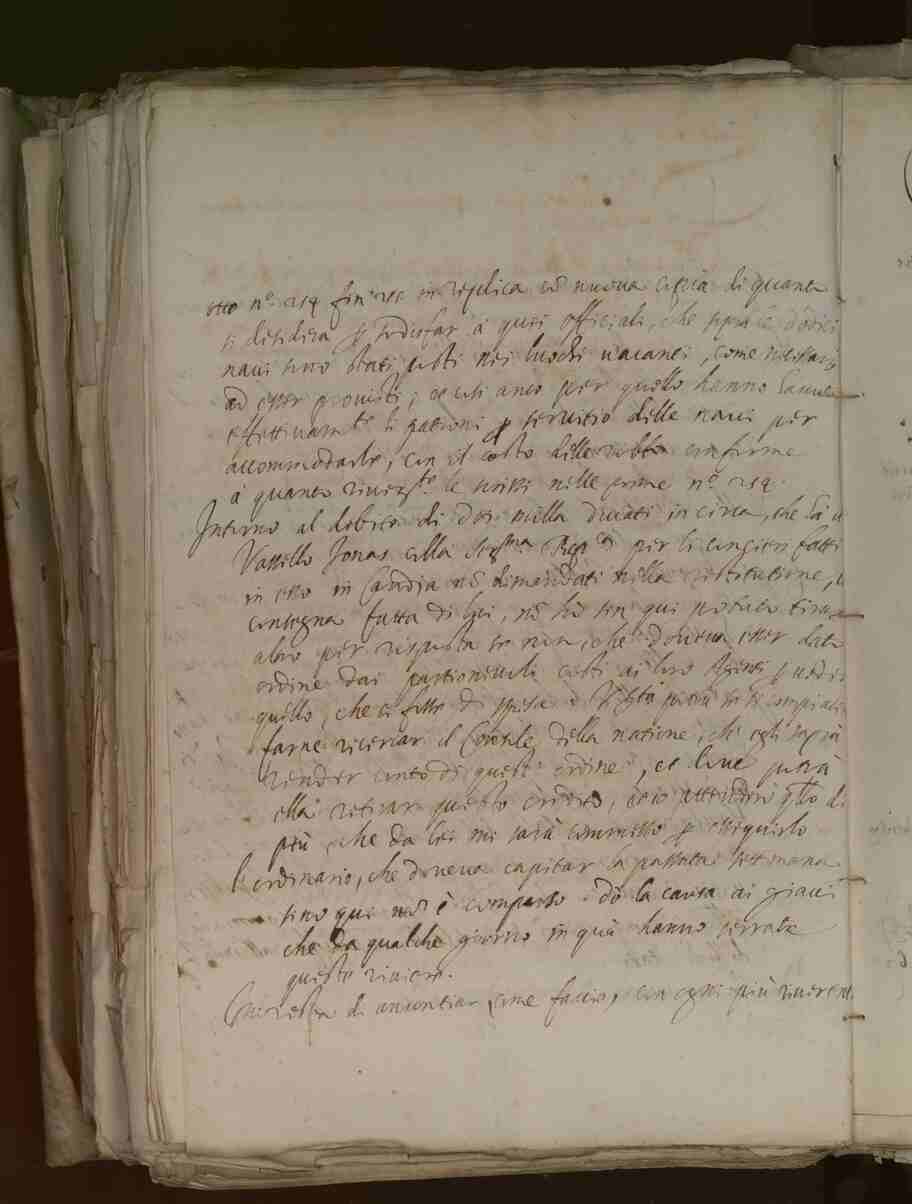 otto n.º 214 in replica cõ nuova copia di quanto
si desidera p sodisfar à quei officiali, che sopra le dodici
navi sono stati posti nei luochi vacanti, come necessarij
ad esser provisti; et così anco per quello hanno
effettivam.te li patroni p servitio delle navi per
accommodarle, con il costo delle robbe conforme
à quanto le scrissi nelle prime n.º 214.
Intorno al debito di doi milla ducati in circa, che hà il
Vassello Jonas colla Ser.ma Rep.ca per li concieri fatti
in esso in Candia nõ dimandati nella restitutione,
consegna fatta di lui, nõ hò sin qui potuto
altro per risposta se non, che doveva esser dato
ordine dai partionevoli costì ai loro Agenti p veder
quello, che è fatto di spesa potrà se si compiace
farne ricercar il Console della natione, che egli saprà
render conto di questo ordine, et dove potrà
ella retirar questo credito, et io attenderò q.to di
più, che da lei mi sarà commesso p esseguirlo
L'ordinario, che doveva capitar la passata settimana
sino qui nõ è comparso. dò la causa ai giacci
che da qualche giorno in quà hanno serrate
queste riviere.
di annontiar come faccio, con ogni più riverente